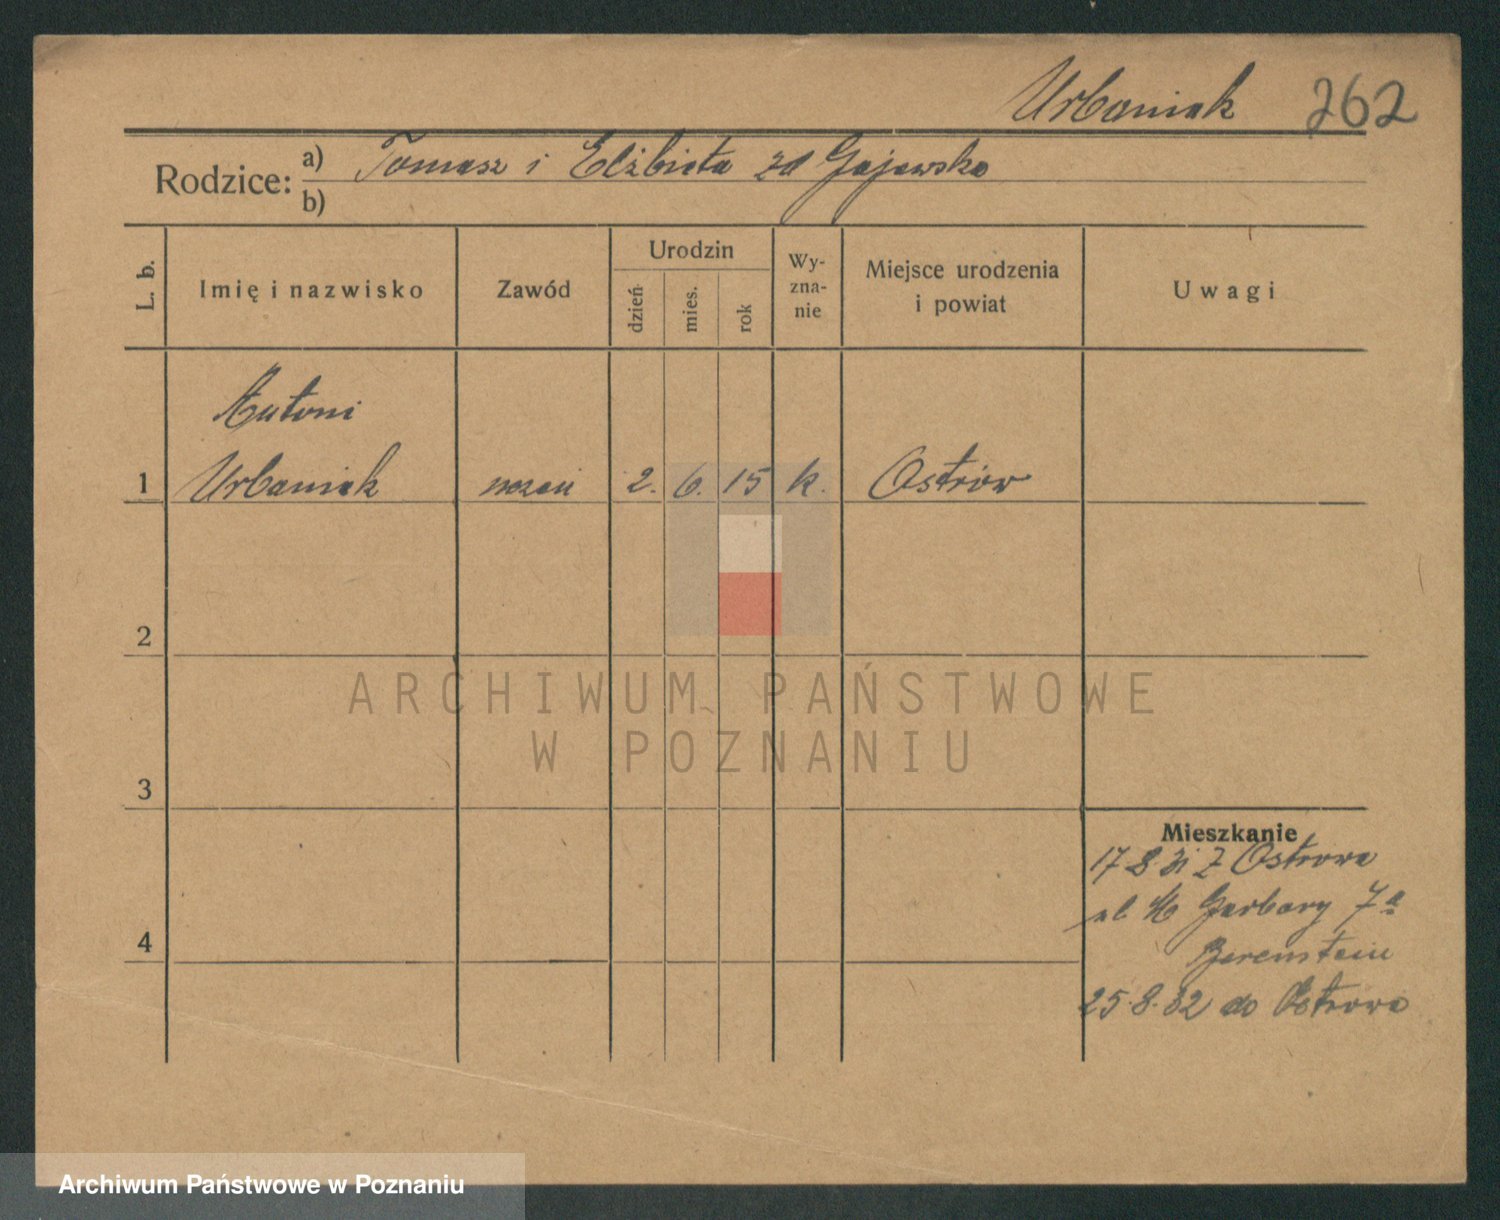 Urbaniak 262
Rodzice: a) Tomasz i Elżbieta zd Gajewska
b)
L. b.
Imię i nazwisko
Zawód
Urodzin
dzień
mies.
rok
Wy-
zna-
nie
Miejsce urodzenia
i powiat
Uwagi
Antoni
1 Urbaniak uczeń 2. 6. 15 k. Ostrów
2
3
4
Mieszkanie
17 8 31 z Ostrowa
ul Garbary 7a
Berenstein
25.8.32 do Ostrowa
ARCHIWUM PAŃSTWOWE
W POZNANIU
Archiwum Państwowe w Poznaniu